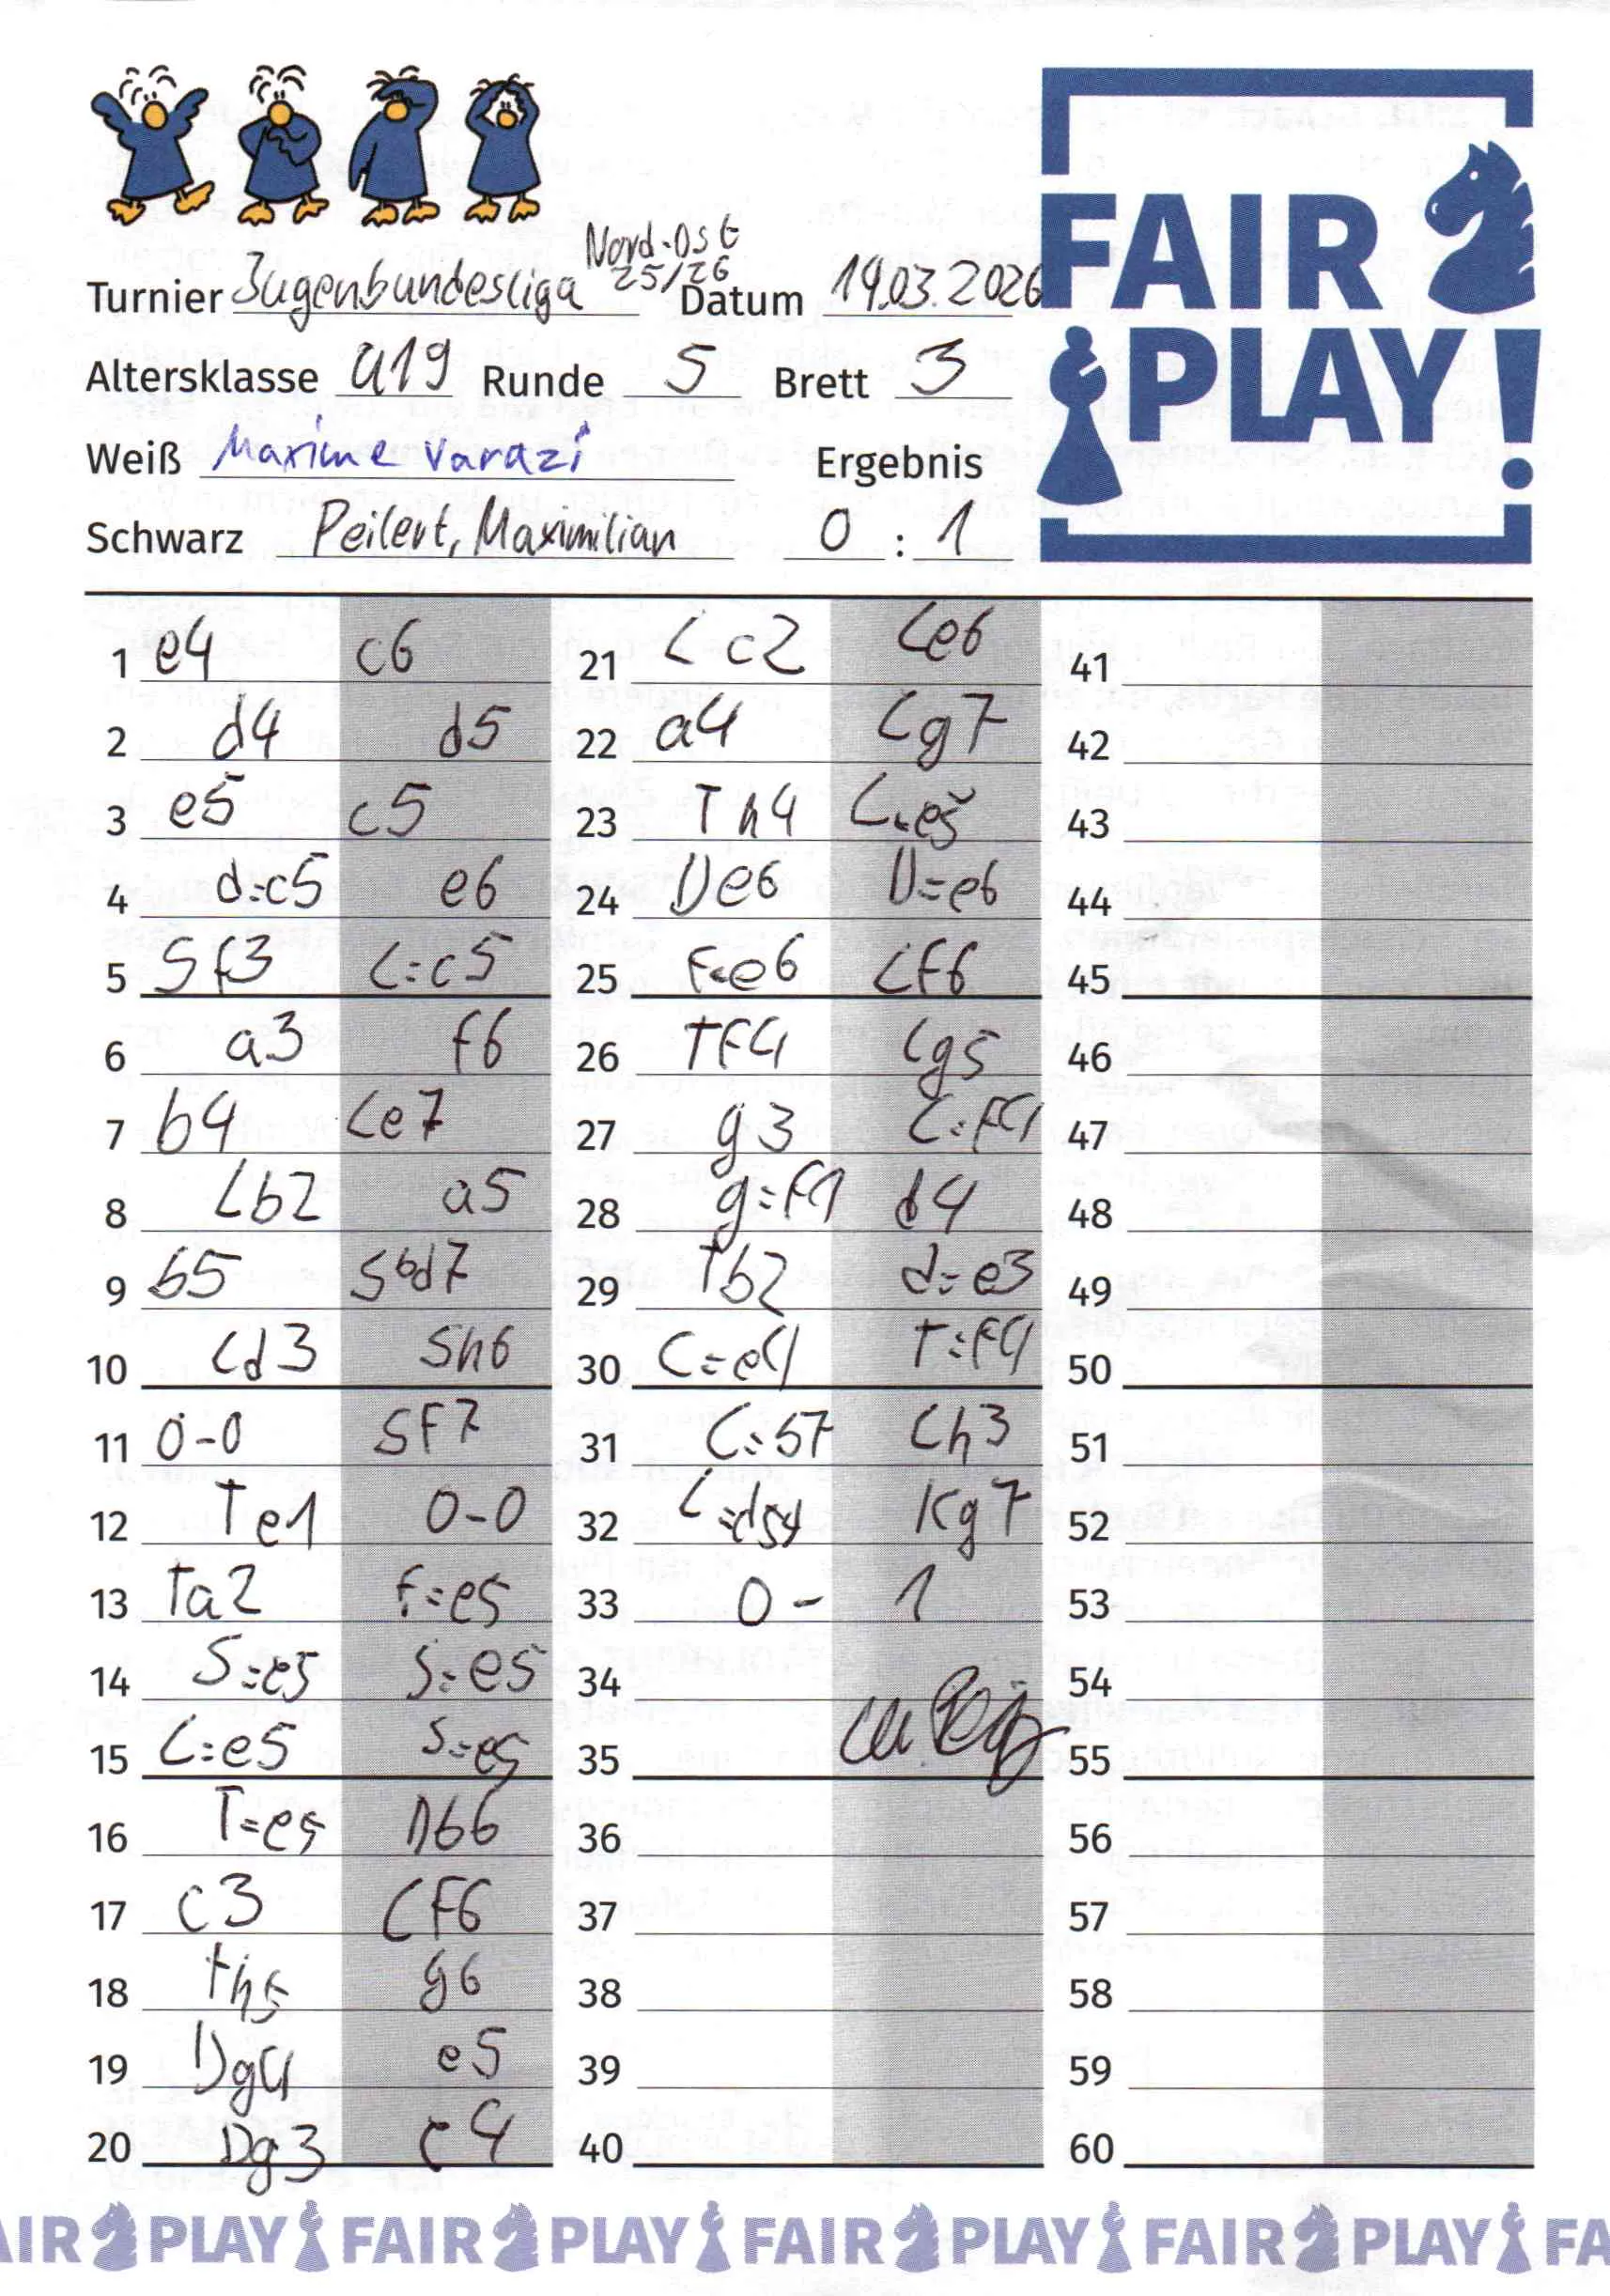 Nord-Ost
Turnier Jugenbundesliga 25/26 Datum 14.03.2026
Altersklasse U19 Runde 5 Brett 3
Weiß Maxime Varazi Ergebnis
Schwarz Peilert, Maximilian 0 : 1
FAIR
PLAY!
1 e4 c6
2 d4 d5
3 e5 c5
4 d=c5 e6
5 Sf3 L=c5
6 a3 f6
7 b4 Le7
8 Lb2 a5
9 b5 Sbd7
10 Ld3 Sh6
11 0-0 SF7
12 Te1 0-0
13 Ta2 f=e5
14 S=e5 S=e5
15 L=e5 S=e5
16 T=e5 Db6
17 c3 LF6
18 Th5 g6
19 Dg4 e5
20 Dg3 e4
21 Lc2 Le6
22 a4 Lg7
23 Th4 L=e5
24 De6 D=e6
25 F=e6 LF6
26 TF4 Lg5
27 g3 L=F4
28 g=F4 d4
29 Tb2 d=e3
30 L=e4 T=F4
31 L=b7 Lh3
32 Kg7
33 0 - 1
34
35
36
37
38
39
40
41
42
43
44
45
46
47
48
49
50
51
52
53
54
55
56
57
58
59
60
AIR PLAY FAIR PLAY FAIR PLAY FAIR PLAY FA